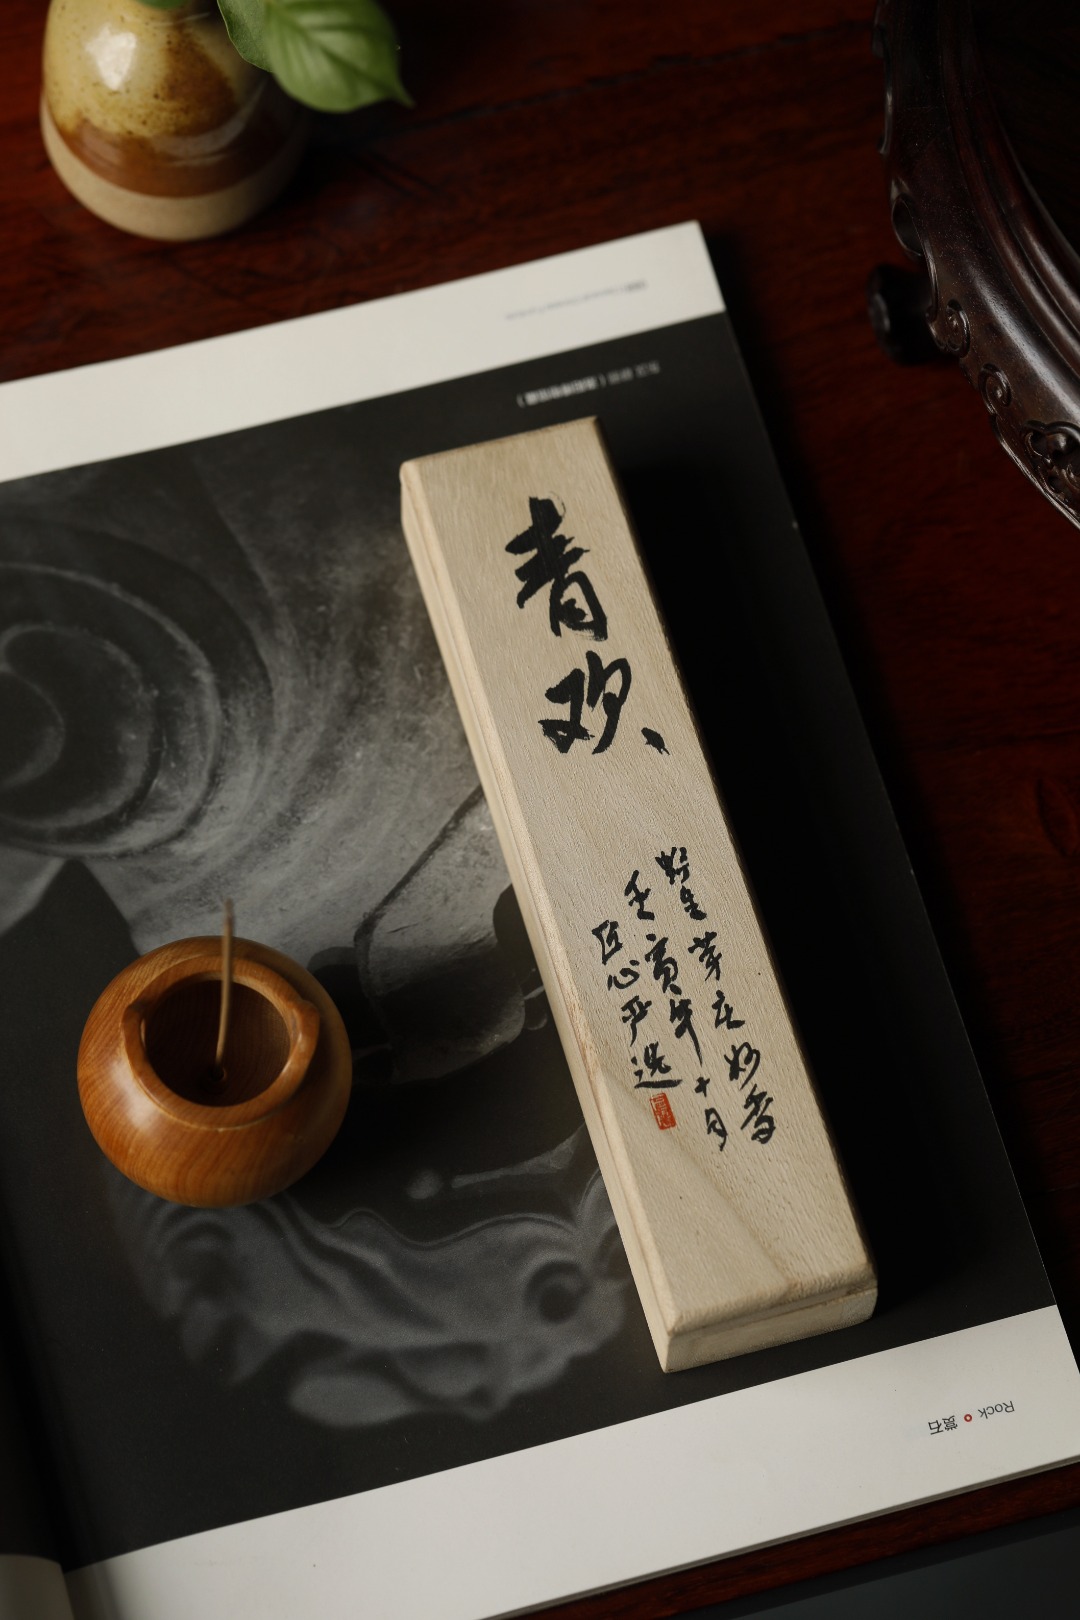 青欢
野生芽庄妙香
壬寅年十月
匠心严选
Rock 赏石